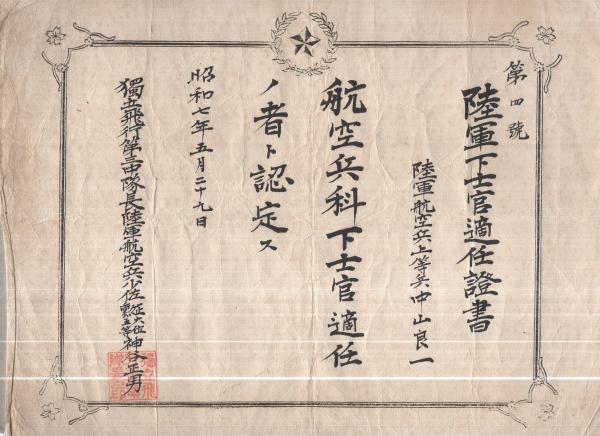 第四號
陸軍下士官適任證書
陸軍航空兵上等兵中山良一
航空兵科下士官適任
ノ者ト認定ス
昭和七年五月二十九日
獨立飛行第三中隊長陸軍航空兵少佐正六位勲五等神谷正男